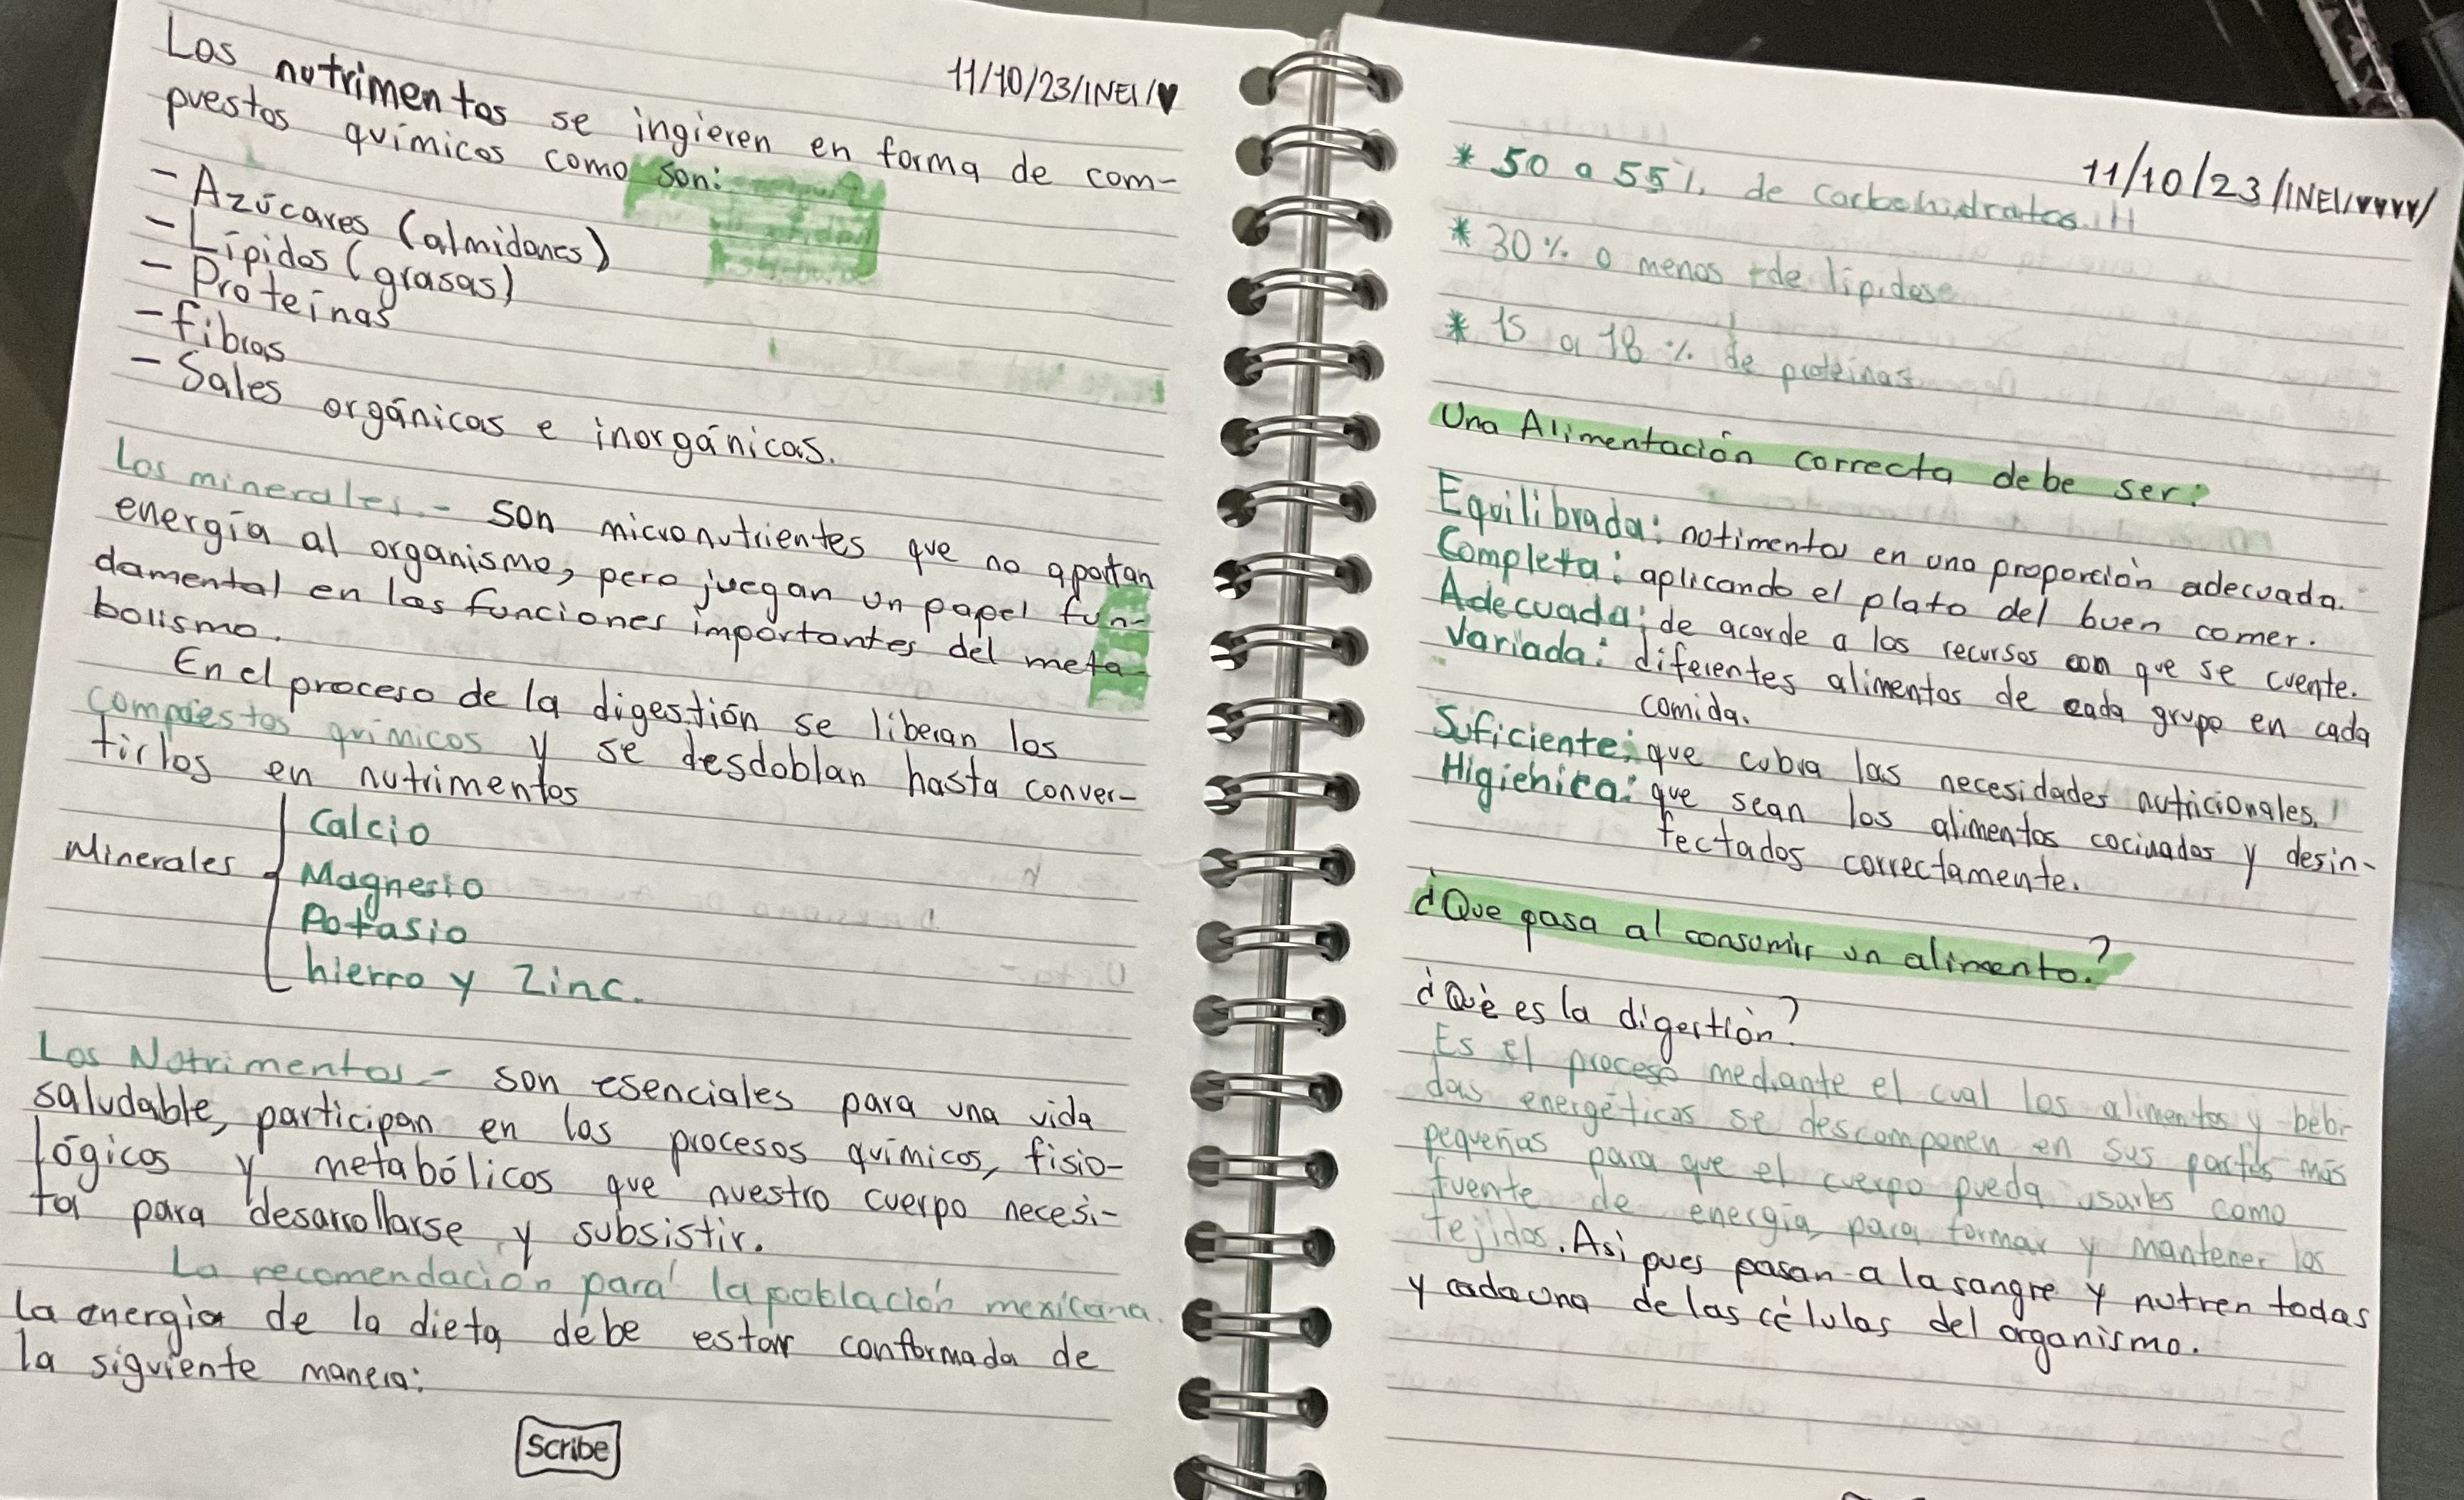 11/10/23/INEI/♥
Los nutrimentos se ingieren en forma de com-
puestos químicos como son:
- Azúcares (almidones)
- Lípidos (grasas)
- Proteínas
- fibras
- Sales orgánicas e inorgánicas.
Los minerales.- son micronutrientes que no aportan
energía al organismo, pero juegan un papel fun-
damental en las funciones importantes del meta-
bolismo.
En el proceso de la digestión se liberan los
compuestos químicos y se desdoblan hasta conver-
tirlos en nutrimentos
Minerales
Calcio
Magnesio
Potasio
hierro y Zinc.
Los Nutrimentos.- son esenciales para una vida
saludable, participan en los procesos químicos, fisio-
lógicos y metabólicos que nuestro cuerpo necesi-
ta para desarrollarse y subsistir.
La recomendación para la población mexicana.
la energía de la dieta debe estar conformada de
la siguiente manera:
Scribe
11/10/23/INEI/♥♥♥♥/
* 50 a 55% de carbohidratos.
* 30% o menos de lípidos
* 15 a 18 % de proteínas
Una Alimentación correcta debe ser:
Equilibrada: notimentos en una proporción adecuada.
Completa: aplicando el plato del buen comer.
Adecuada: de acorde a los recursos con que se cuente.
Variada: diferentes alimentos de cada grupo en cada
comida.
Suficiente: que cubra las necesidades nutricionales.
Higiénica: que sean los alimentos cocinados y desin-
fectados correctamente.
¿Que pasa al consumir un alimento.?
¿Qué es la digestión?
Es el proceso mediante el cual los alimentos y bebi-
das energéticas se descomponen en sus partes más
pequeñas para que el cuerpo pueda usarles como
fuente de energía, para formar y mantener los
tejidos. Asi pues pasan a la sangre y nutren todas
y cada una de las células del organismo.